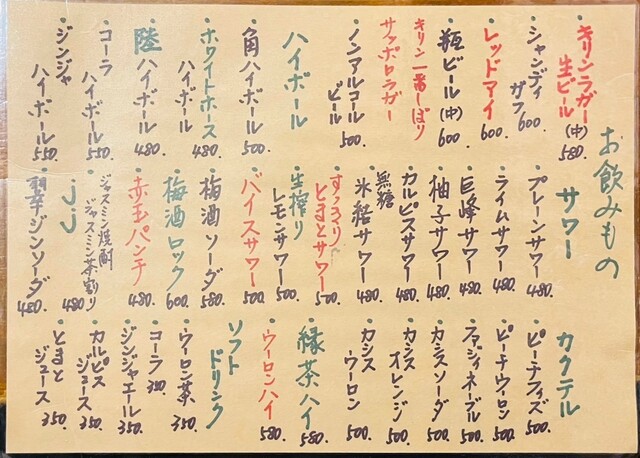 お飲みもの
キリンラガー
生ビール(中)580.
シャンディ
ガフ600.
レッドアイ600.
瓶ビール(中)600
キリン一番しぼり
サッポロラガー
ノンアルコール
ビール500
ハイボール
角ハイボール500.
ホワイトホース
ハイボール480.
陸ハイボール480
コーラ
ハイボール550.
ジンジャ
ハイボール550.
サワー
プレーンサワー480.
ライムサワー480.
巨峰サワー480.
柚子サワー480
カルピスサワー480.
無糖
氷結サワー480.
すっきり
とまとサワー500.
生搾り
レモンサワー500.
バイスサワー500.
梅酒ソーダ580
梅酒ロック600.
赤玉パンチ480.
jj
ジャスミン焼酎
ジャスミン茶割り480.
翠ジンソーダ480.
カクテル
ピーチフィズ500.
ピーチウーロン500.
ファジィネーブル500
カシスソーダ500.
カシス
オレンジ500.
カシス
ウーロン500
緑茶ハイ580.
ウーロンハイ580.
ソフト
ドリンク
ウーロン茶350.
コーラ350
ジンジャエール350.
カルピス
ジュース350.
とまと
ジュース350.